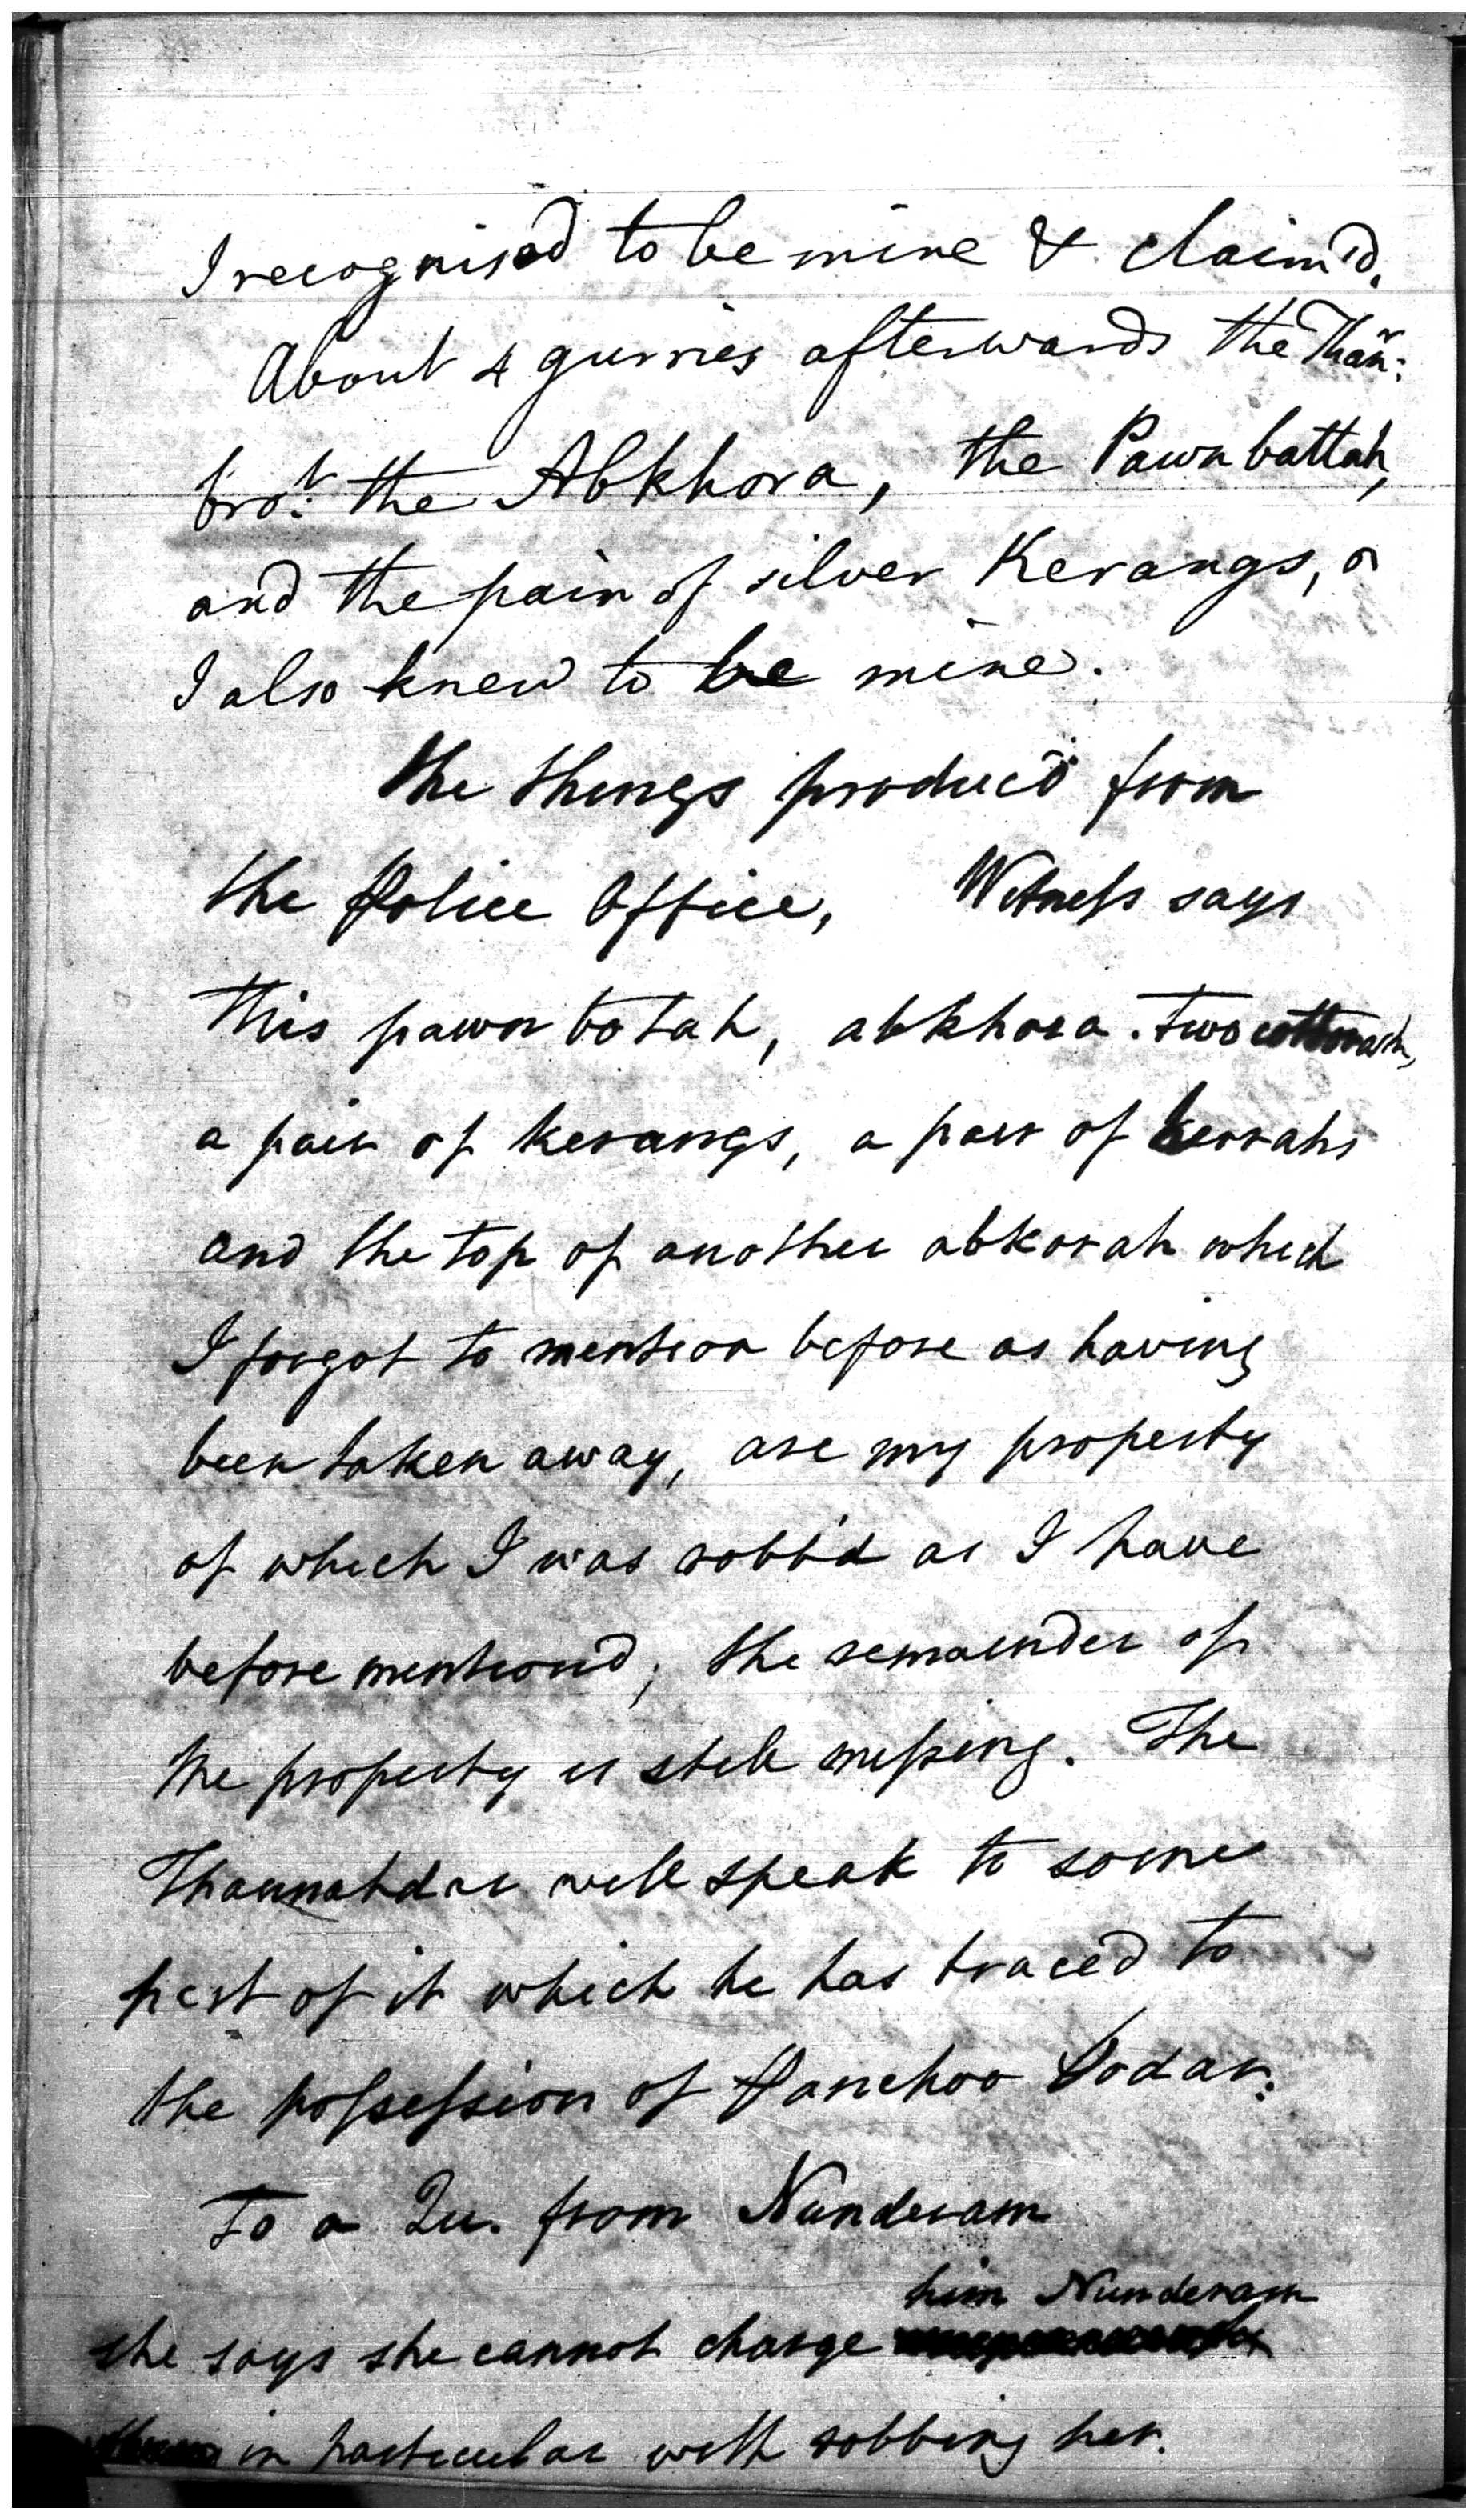 I recognised to be mine & claim'd.
About 4 gurries afterwards the Than:r
bro:t the Abkhora, the Pawn battah,
and the pair of silver Kerangs, 
I also knew to be mine.
The things produc'd from
the Police Office, Witness says
this pawn botah, abkhora. two cottorah,
a pair of kerangs, a pair of kerrahs
and the top of another abkorah which
I forgot to mention before as having
been taken away, are my property
of which I was robb'd as I have
before mentiond; the remainder of
the property is still missing. The
Thannahdar will speak to some
part of it which he has traced to
the possession of Panchoo Podar:
To a Qu. from Nunderam
him Nunderam
she says she cannot charge
in particular with robbing her.